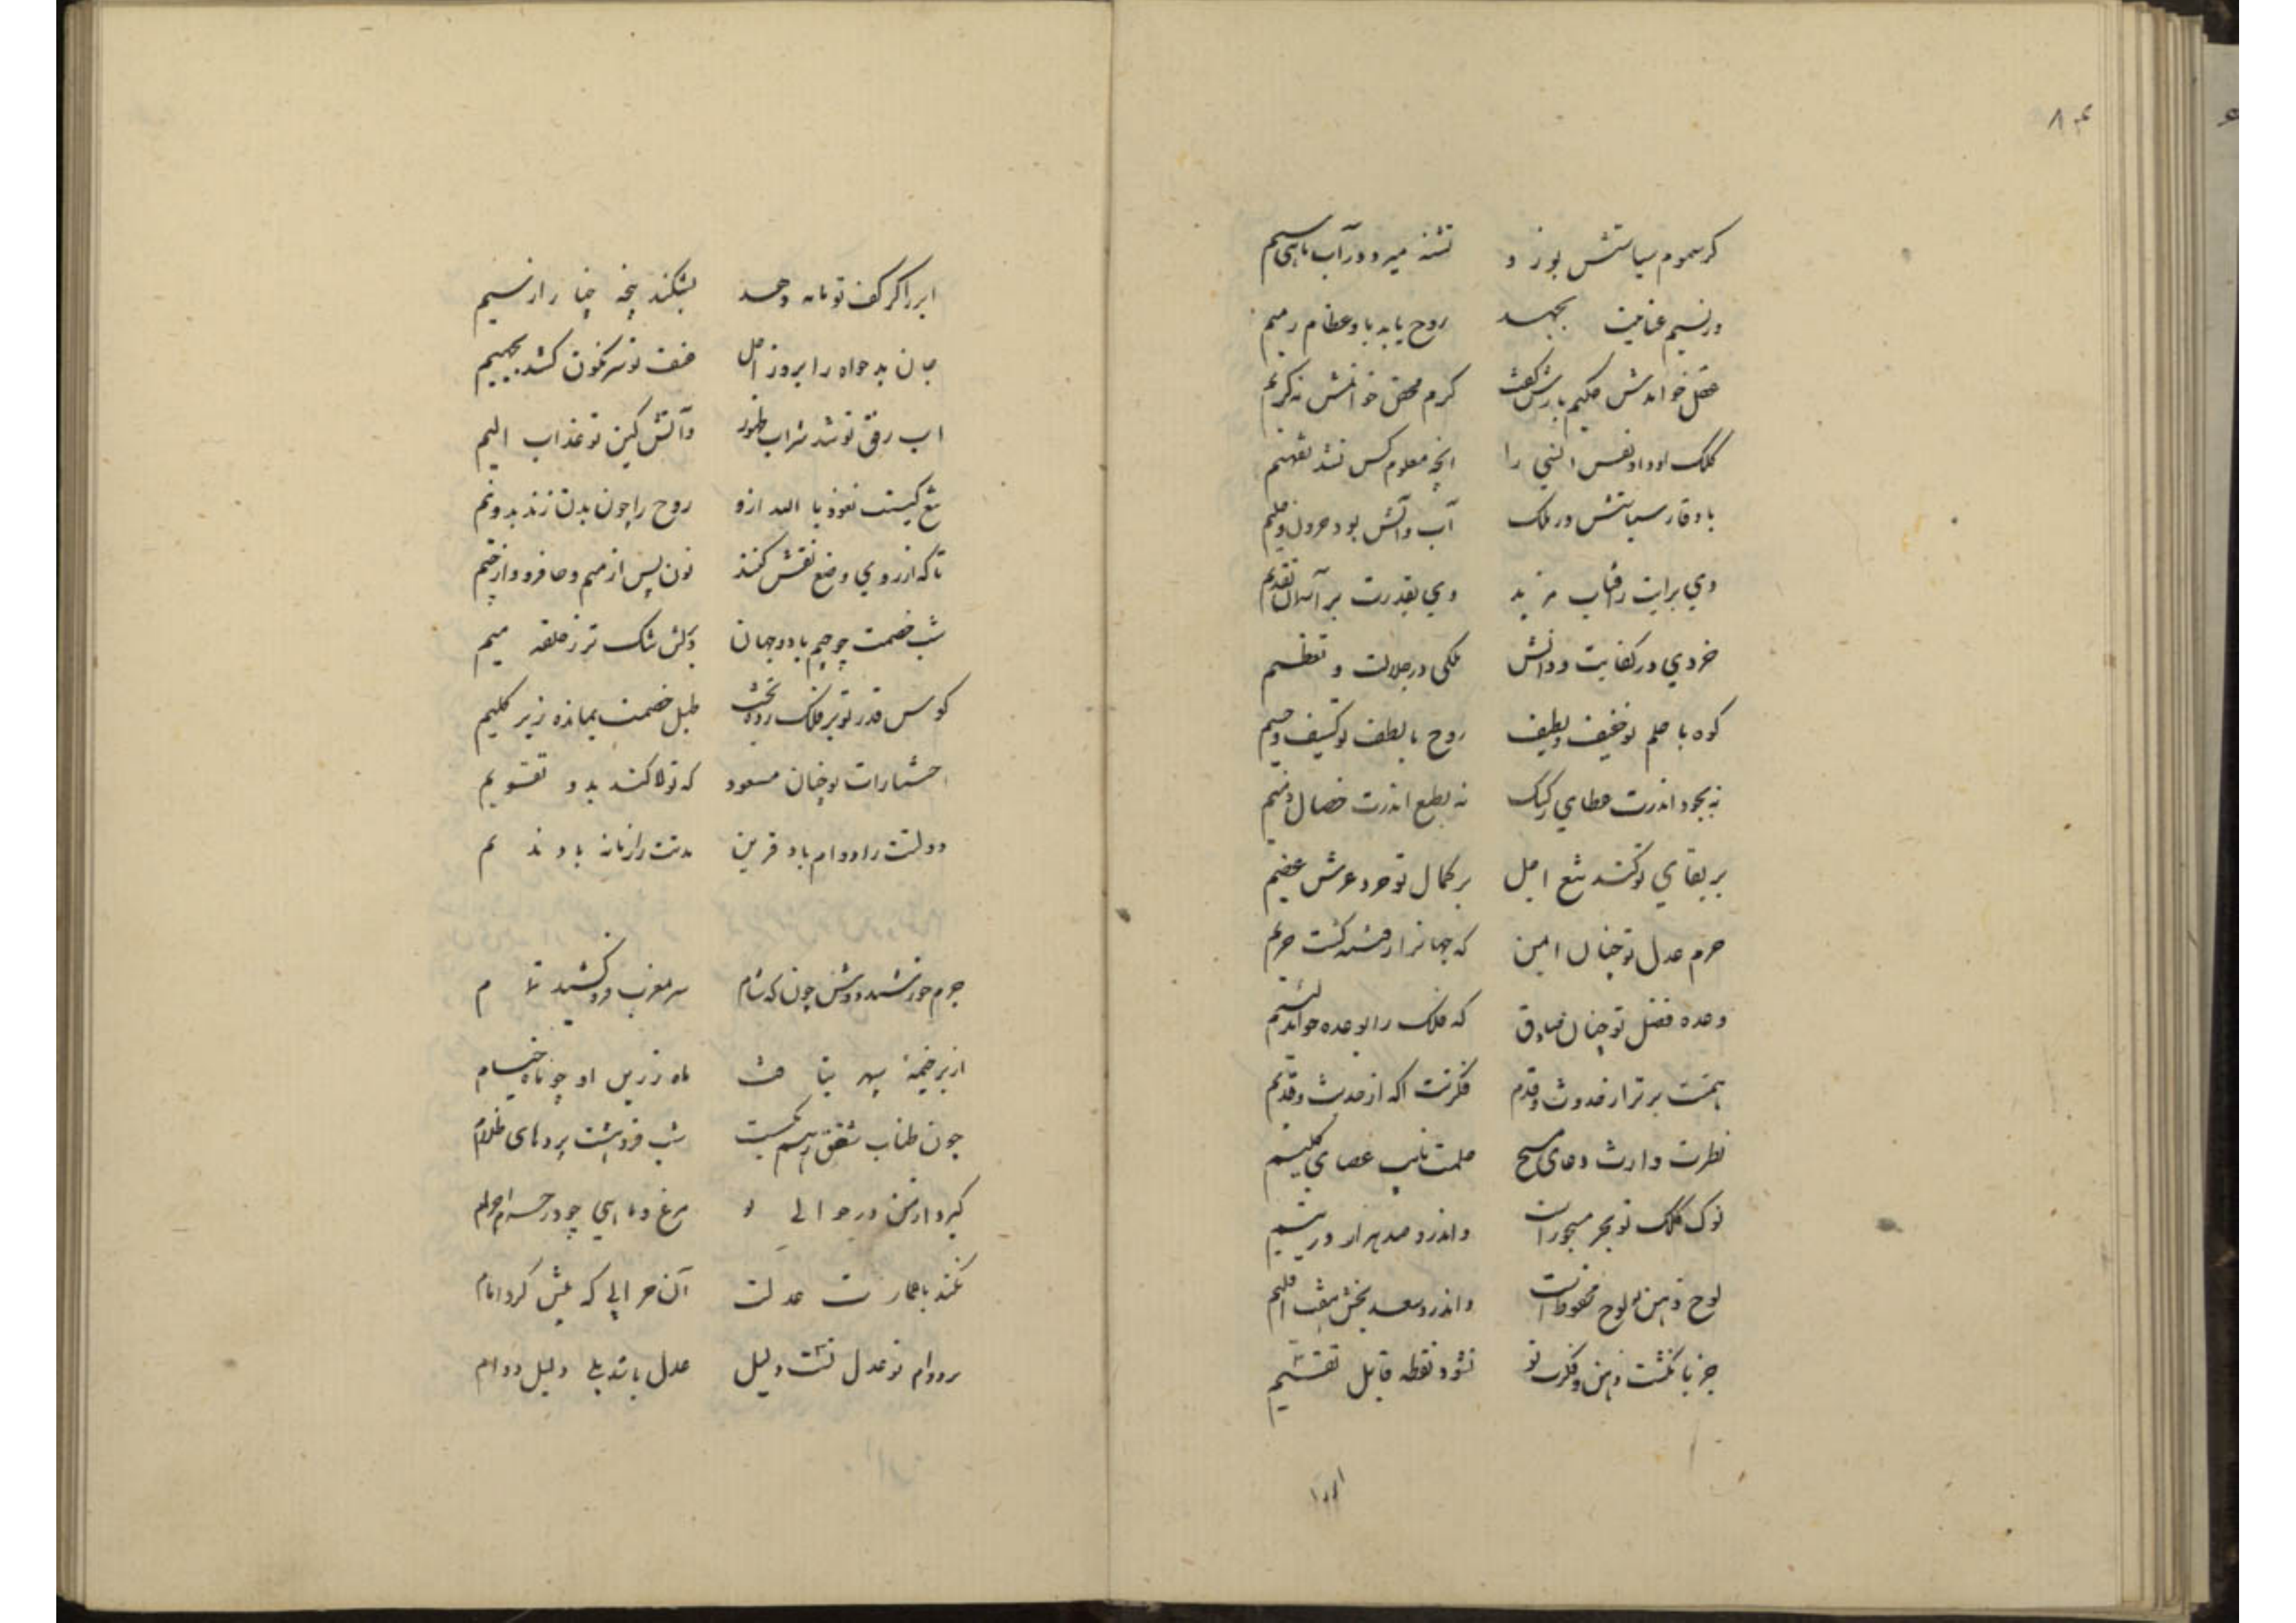 ۸۴
گر سموم سیاستش بوزد تشنه میرد در آب ماهی سیم
ور نسیم عنایت بجهد روح یابد باو عظام رمیم
عقل خواندش حکیم بازش گفت کرم محض خوانمش نه کریم
کلک او داد نفس انسی را انچه معلوم کس نشد تفهیم
با وقار سیاستش در ملک آب و آتش بود حرون و حلیم
وی برایت ز افتاب مزید وی بقدرت بر آسمان تقدیم
خردی در کفایت و دانش ملکی در جلالت و تعظیم
کوه با حلم تو خفیف و لطیف روح با لطف تو کثیف و جسیم
نه بجود اندرت عطای رکیک نه بطبع اندرت خصال ذمیم
بر بقای تو کند تیغ اجل بر کمال تو خرد عرش عظیم
حرم عدل تو چنان ایمن که جهانرا ز فتنه گشت حریم
وعده فضل تو چنان صادق که فلک را بوعده خواند لئیم
همتت برتر از حدوث و قدم فکرتت اگه از حدیث و قدیم
نظرت وارث دعای مسیح حلمت نایب عصای کلیم
نوک کلک تو بحر مسجور است واندرو صد هزار در یتیم
لوح ذهن تو لوح محفوظ است واندرو سعد بخش هفت اقلیم
جز بانگشت ذهن و فکرت تو نشود نقطه قابل تقسیم
ابررا
ابررا گر کف تو مایه دهد بشکند پنجه چنار از نسیم
جان بدخواه را بروز اجل عنف تو سرنگون کشد بجحیم
اب رفق تو شد شراب طهور و آتش کین تو عذاب الیم
تیغ کینت نعوذ با الله ازو روح را چون بدن زند بدو نیم
تا که از روی وضع نقش کنند نون پس از میم و حا فروتر از جیم
شب خصمت چو جیم باد و جهان بدلش تنگ تر ز حلقه میم
کوس قدر تو بر فلک زده بخت طبل خصمت بمانده زیر گلیم
اختیارات تو چنان مسعود که تولا کند بدو تقویم
دولتت را دوام باد قرین مدتت را زمانه باد ندیم
جرم خورشید دوش چون گه شام سر بمغرب فرو کشید تمام
از بر خیمه سپهر بتافت ماه زرین او چو ماه خیام
چون طناب شفق ز هم بگسست شب فروهشت پردهای ظلام
گیرد از امن در حوالی تو مرغ و ماهی چو در حرم احرام
نکند با عمارت عدلت آن خرابی که بیش کرد ایام
بر دوام تو عدل تست دلیل عدل باشد بلی دلیل دوام